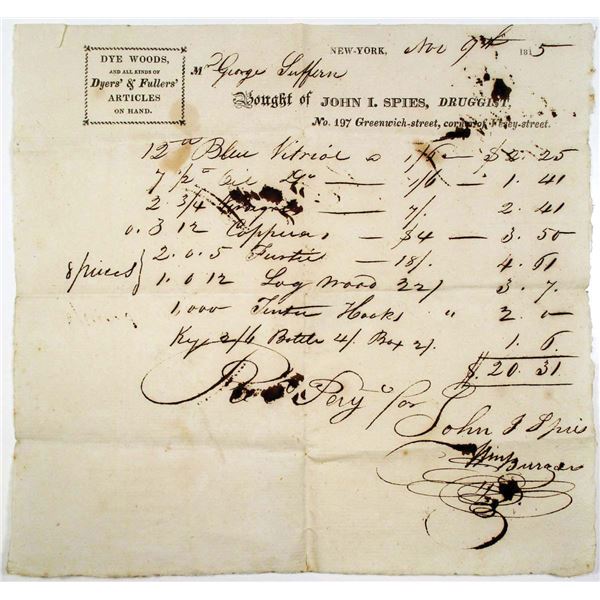 DYE WOODS,
AND ALL KINDS OF
Dyers' & Fullers'
ARTICLES
ON HAND.
NEW-YORK, Nov 9th 1815
Mr George Suffern
Bought of JOHN I. SPIES, DRUGGIST,
No. 197 Greenwich-street, corner of Vesey-street.
12 Blue Vitriol a 1/6 — $2. 25
7 1/2 Oil — 1/6 — 1. 41
2 3/4 — 7/. 2. 41
0. 3 12 Copperas — $4 — 3. 50
2. 0. 5 Fustic — 18/. 4. 61
8 pieces } 1. 0. 12 Log Wood 22/ 3. 7.
1,000 Tenter Hooks " 2. 0
Kegs 2/6 Bottle 4/. Box 2/. 1. 6.
$. 20. 31
Pay for
John I Spies
Wm Burger